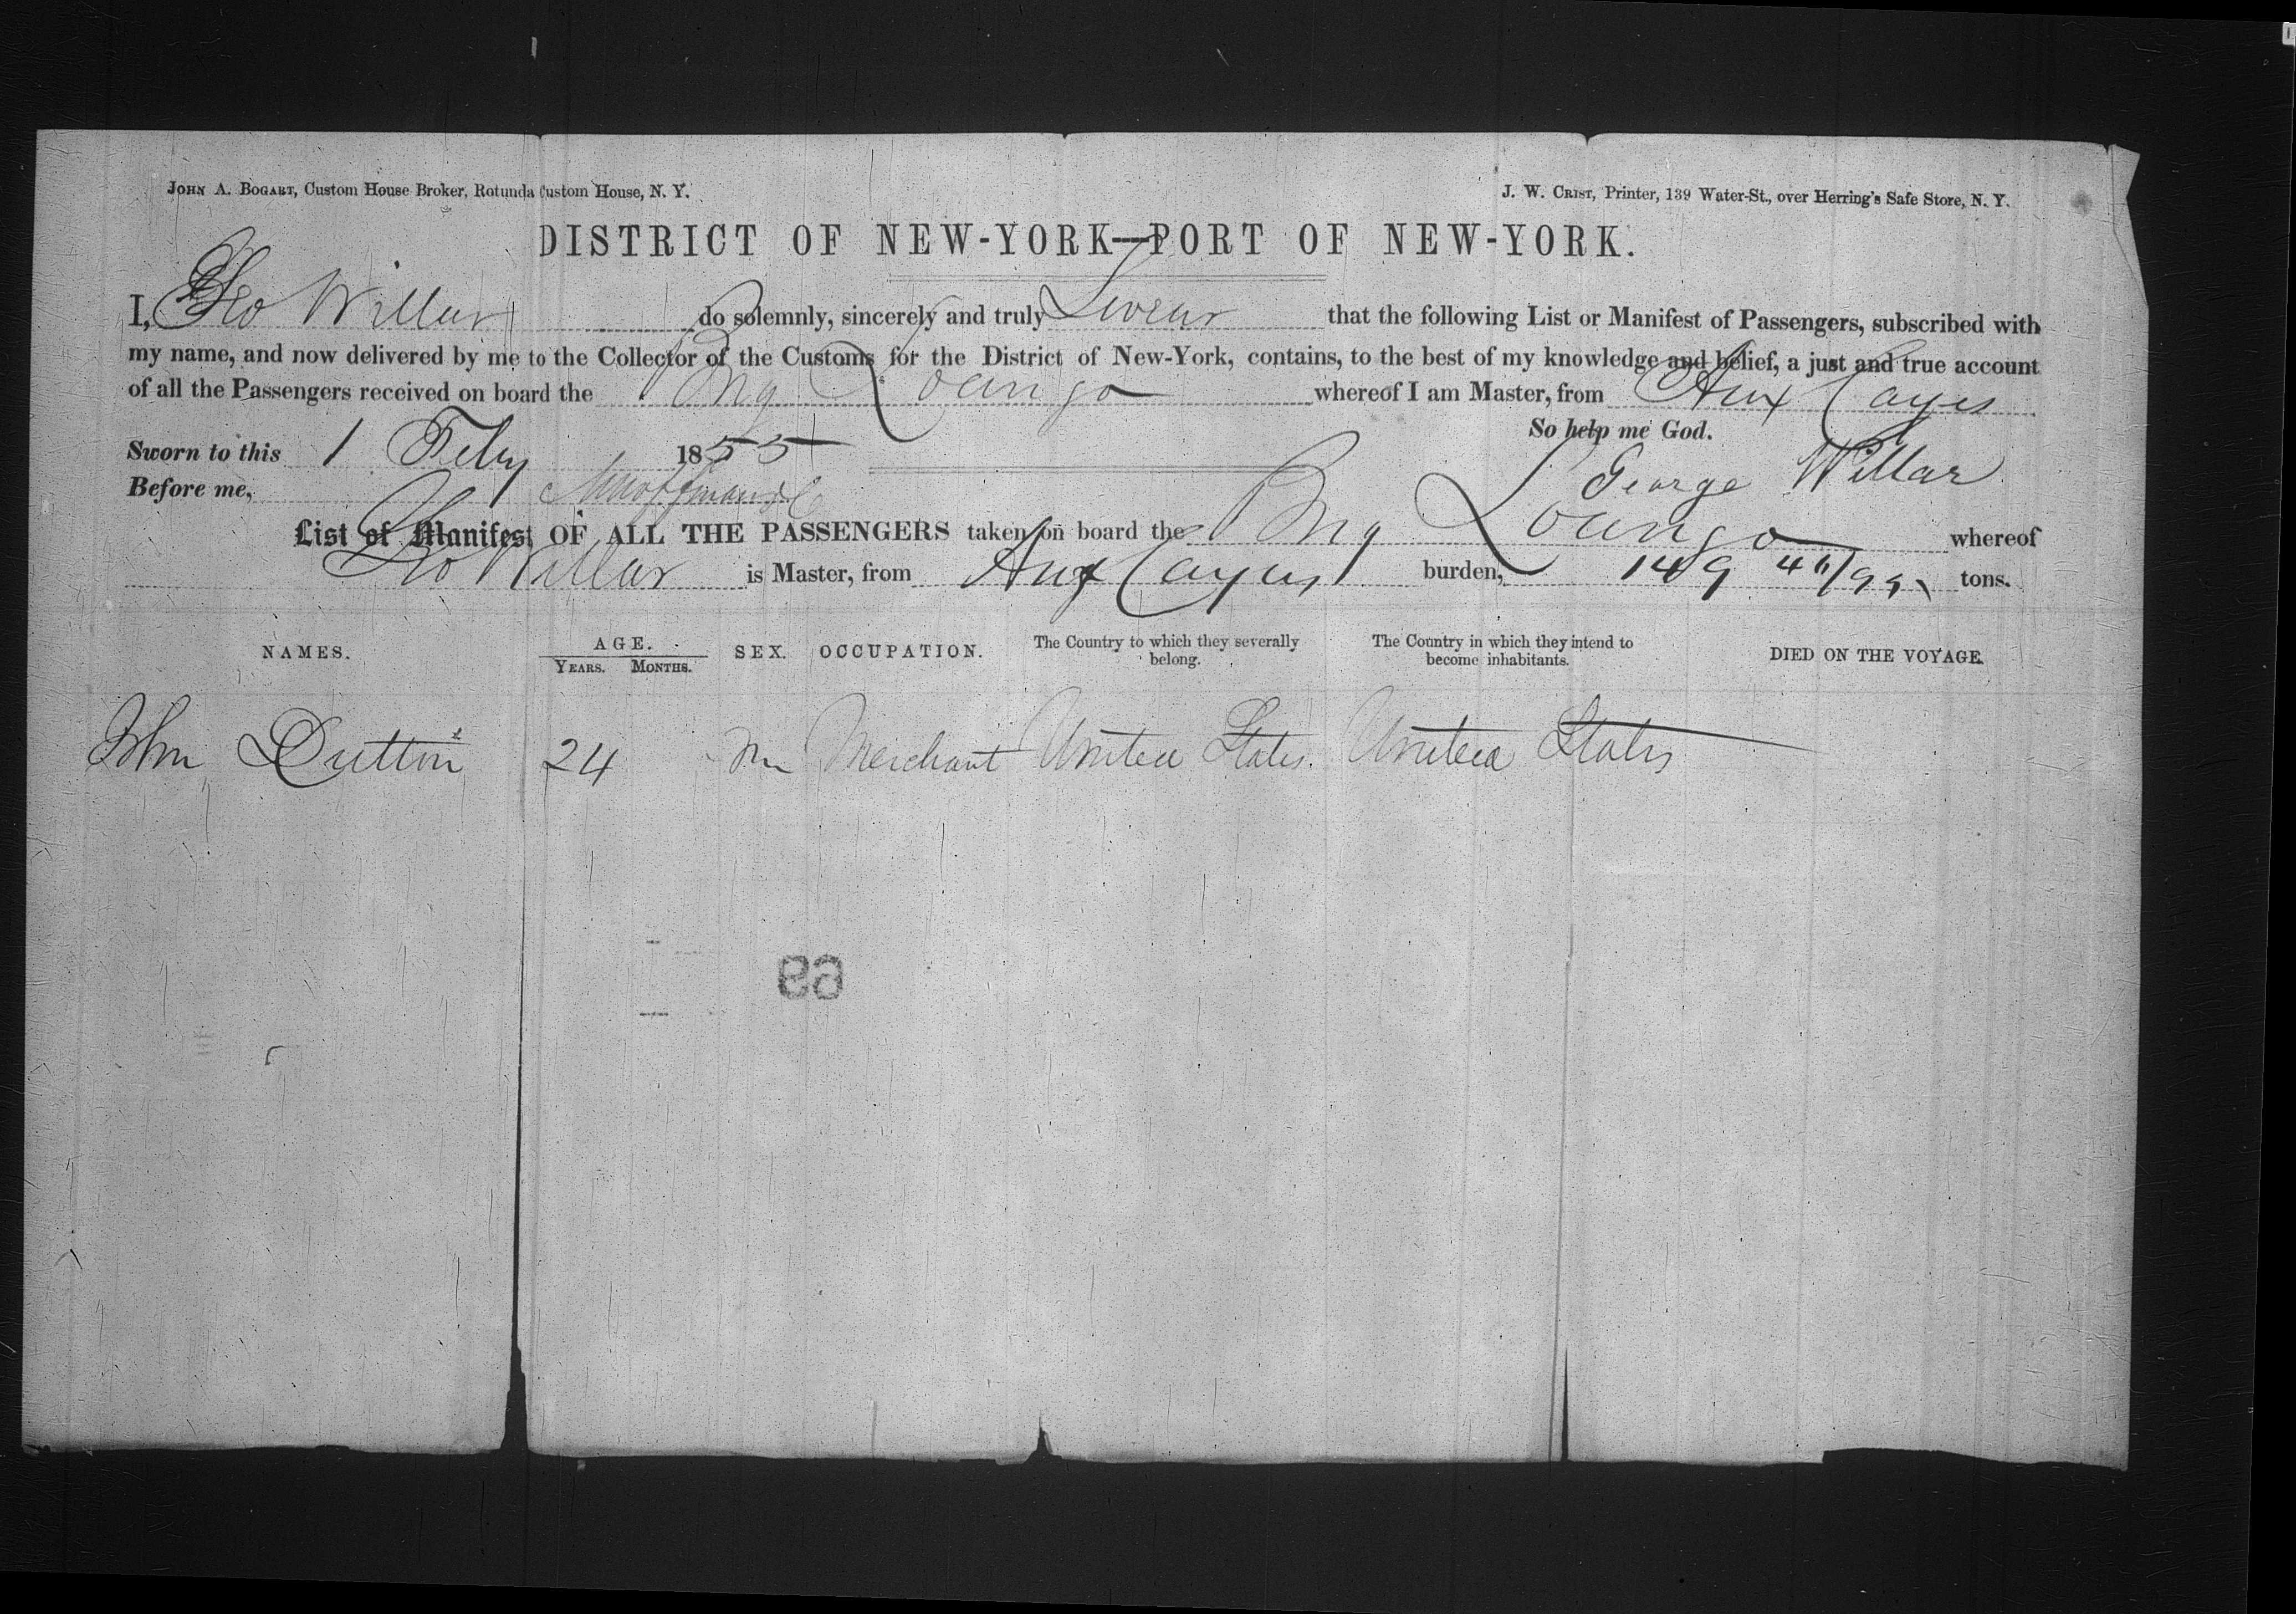 JOHN A. BOGART, Custom House Broker, Rotunda Custom House, N. Y.
J. W. CRIST, Printer, 139 Water-St., over Herring's Safe Store, N. Y.
DISTRICT OF NEW-YORK—PORT OF NEW-YORK.
I, Geo Willar do solemnly, sincerely and truly Swear that the following List or Manifest of Passengers, subscribed with
my name, and now delivered by me to the Collector of the Customs for the District of New-York, contains, to the best of my knowledge and belief, a just and true account
of all the Passengers received on board the Brig Loango whereof I am Master, from Aux Cayes
So help me God.
Sworn to this 1 Feby 1855
George Willar
Before me,
List or Manifest OF ALL THE PASSENGERS taken on board the Brig Loango whereof
Geo Willar is Master, from Aux Cayes burden, 149 tons.
NAMES. AGE. YEARS. MONTHS. SEX. OCCUPATION. The Country to which they severally belong. The Country in which they intend to become inhabitants. DIED ON THE VOYAGE.
John Dutton 24 m Merchant United States. United States
69